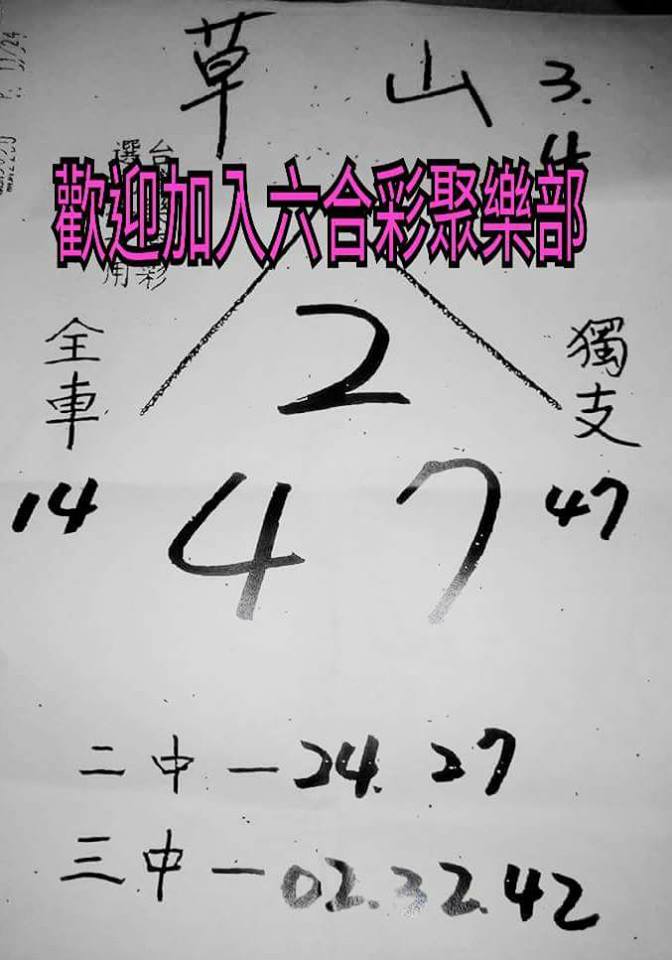 草山 3.
歡迎加入六合彩聚樂部
2
全車
獨支
14
4 7
47
二中一24. 27
三中一02.32.42